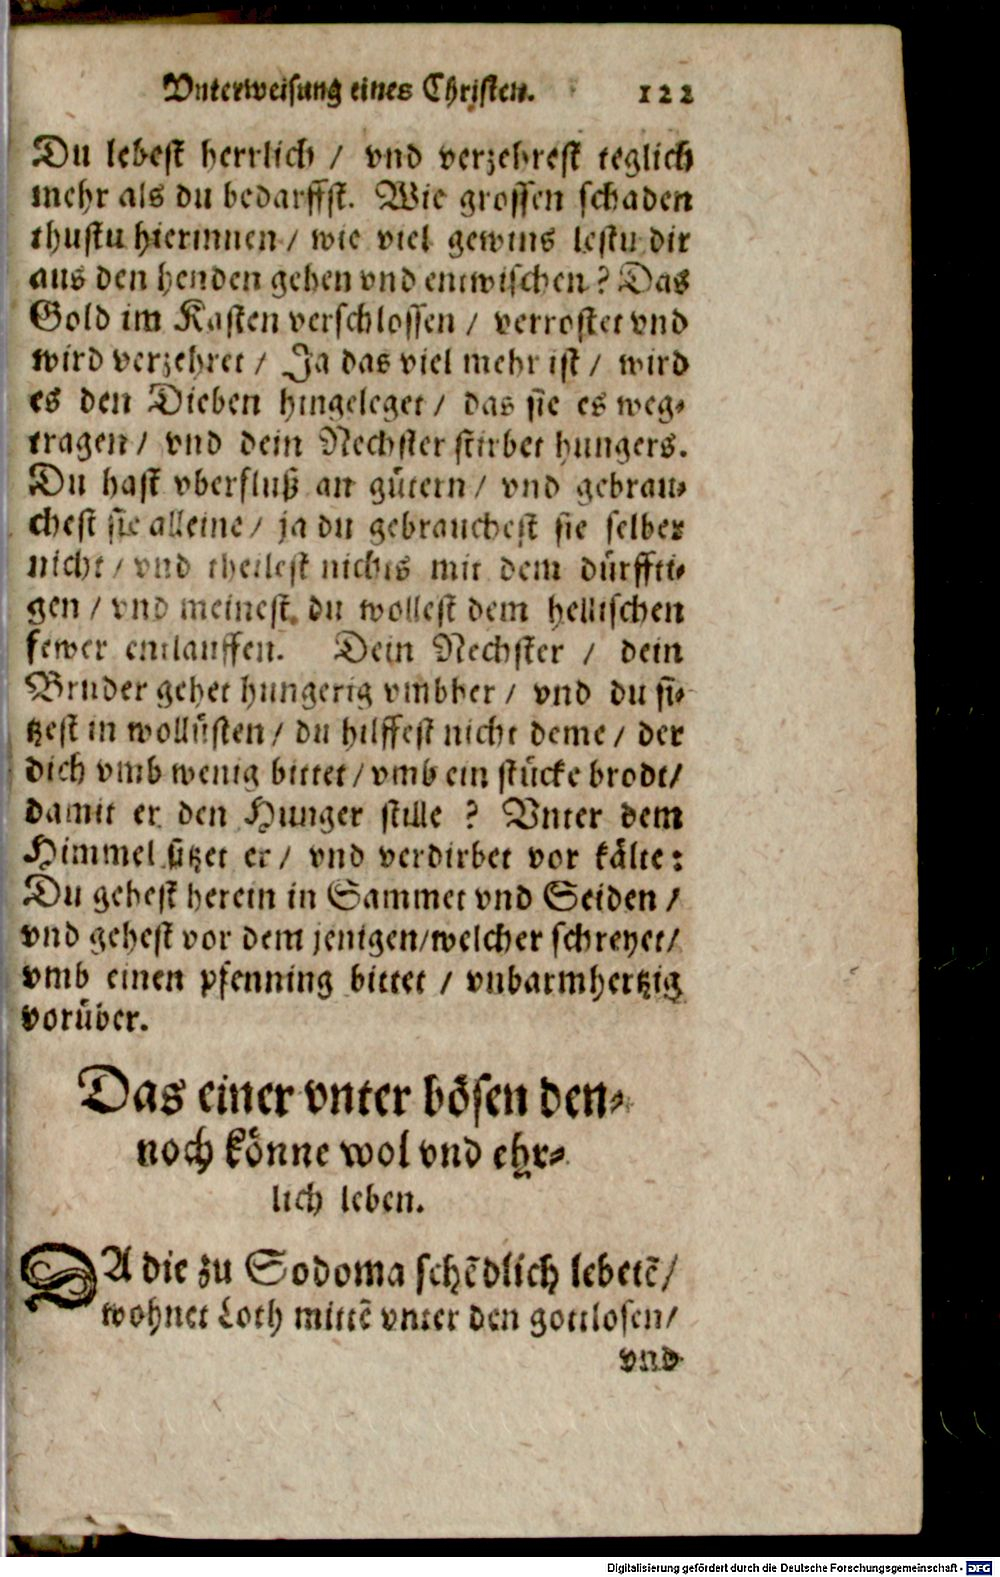 Vnterweisung eines Christen. 122
Du lebest herrlich / vnd verzehrest teglich
mehr als du bedarffst. Wie grossen schaden
thustu hierinnen / wie viel gewins lestu dir
aus den henden gehen vnd entwischen? Das
Gold im Kasten verschlossen / verrostet vnd
wird verzehret / Ja das viel mehr ist / wird
es den Dieben hingeleget / das sie es weg⸗
tragen / vnd dein Nechster stirbet hungers.
Du hast vberfluß an gütern / vnd gebrau⸗
chest sie alleine / ja du gebrauchest sie selber
nicht / vnd theilest nichts mit dem dürffti⸗
gen / vnd meinest du wollest dem hellischen
fewer entlauffen. Dein Nechster / dein
Bruder gehet hungerig vmbher / vnd du si⸗
tzest in wollüsten / du hilffest nicht deme / der
dich vmb wenig bittet / vmb ein stücke brodt /
damit er den Hunger stille ? Vnter dem
Himmel sitzet er / vnd verdirbet vor kälte:
Du gehest herein in Sammet vnd Seiden /
vnd gehest vor dem jenigen / welcher schreyet /
vmb einen pfenning bittet / vnbarmhertzig
vorüber.
Das einer vnter bösen den⸗
noch könne wol vnd ehr⸗
lich leben.
DA die zu Sodoma schẽdlich lebetẽ /
wohnet Loth mittẽ vnter den gottlosen /
vnd
Digitalisierung gefördert durch die Deutsche Forschungsgemeinschaft - DFG